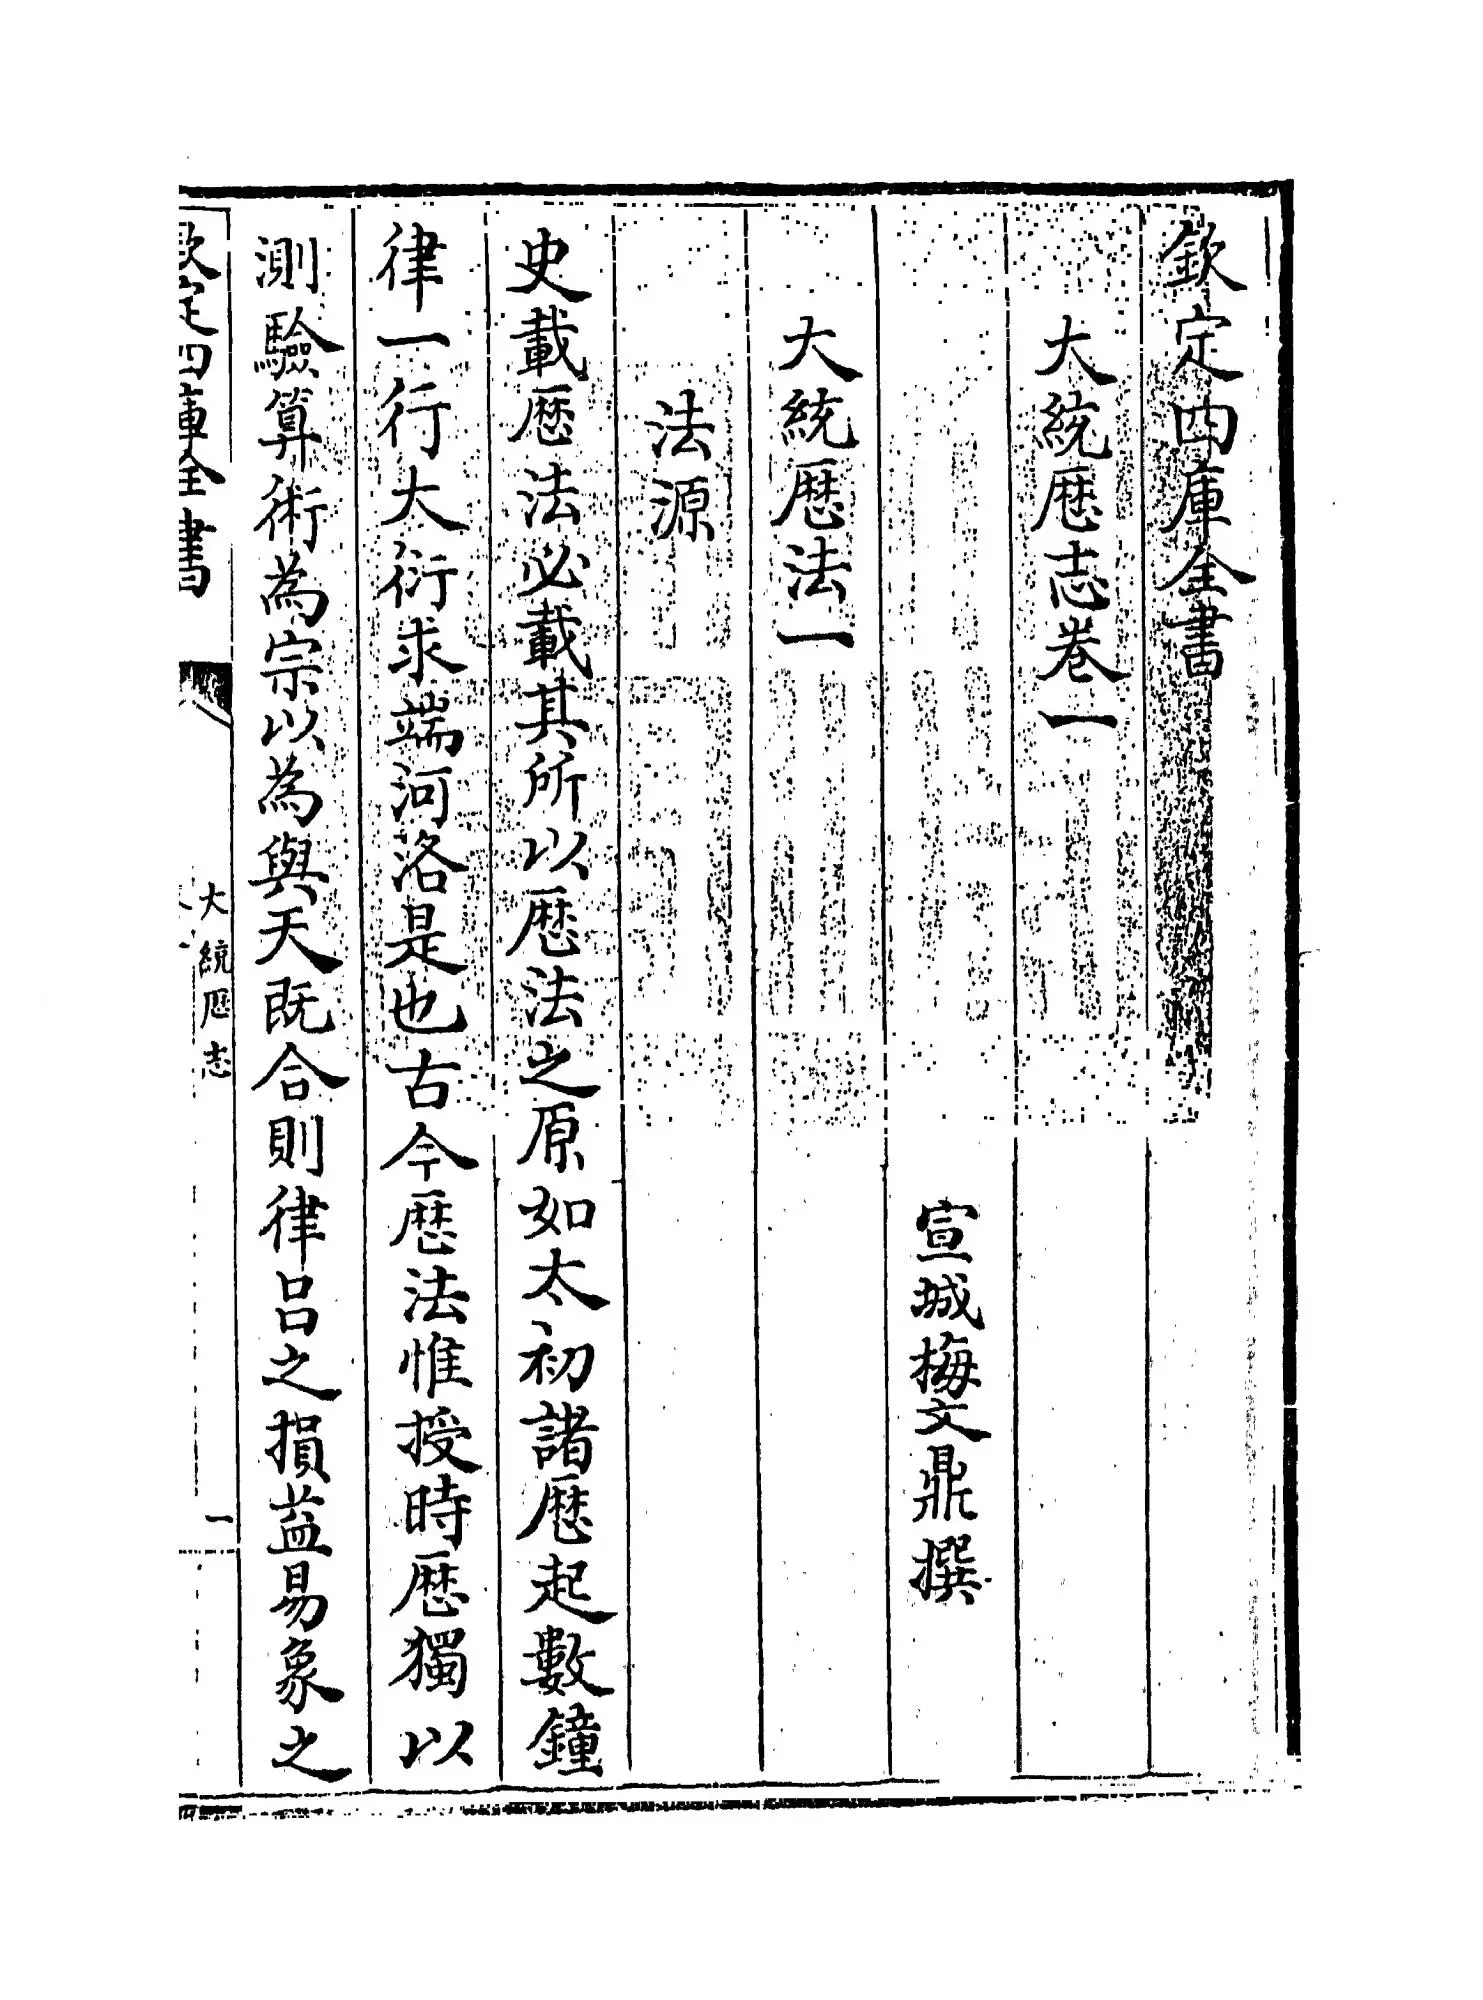 欽定四庫全書
大統厯志卷一
宣城梅文鼎撰
大統厯法一
法源
史載厯法必載其所以厯法之原如太初諸厯起數鐘
律一行大衍求端河洛是也古今厯法惟授時厯獨以
測驗算術為宗以為與天既合則律呂之損益易象之
欽定四庫全書
大統厯志
一